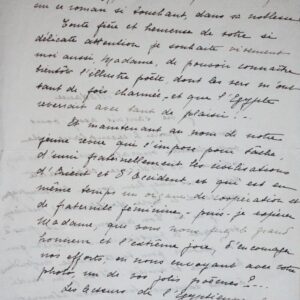 ce roman si touchant, dans sa noblesse
Toute fière et heureuse de votre si
délicate attention je souhaite vivement
moi aussi, Madame, de pouvoir connaître
bientôt l'illustre poète dont les vers m'ont
tant de fois charmée, et que l'Egypte
reverrait avec tant de plaisir!
Et maintenant au nom de notre
jeune revue qui s'impose pour tâche
d'unir fraternellement les civilisations
d'Orient et d'Occident et qui est en
même temps un organe de coopération et
de fraternité féminine, puis-je espérer
Madame, que vous nous ferez le grand
honneur et l'extrême joie, d'encourager
nos efforts, en nous envoyant avec votre
photo, un de vos jolis poèmes?...
Les lecteurs de l'Egyptienne